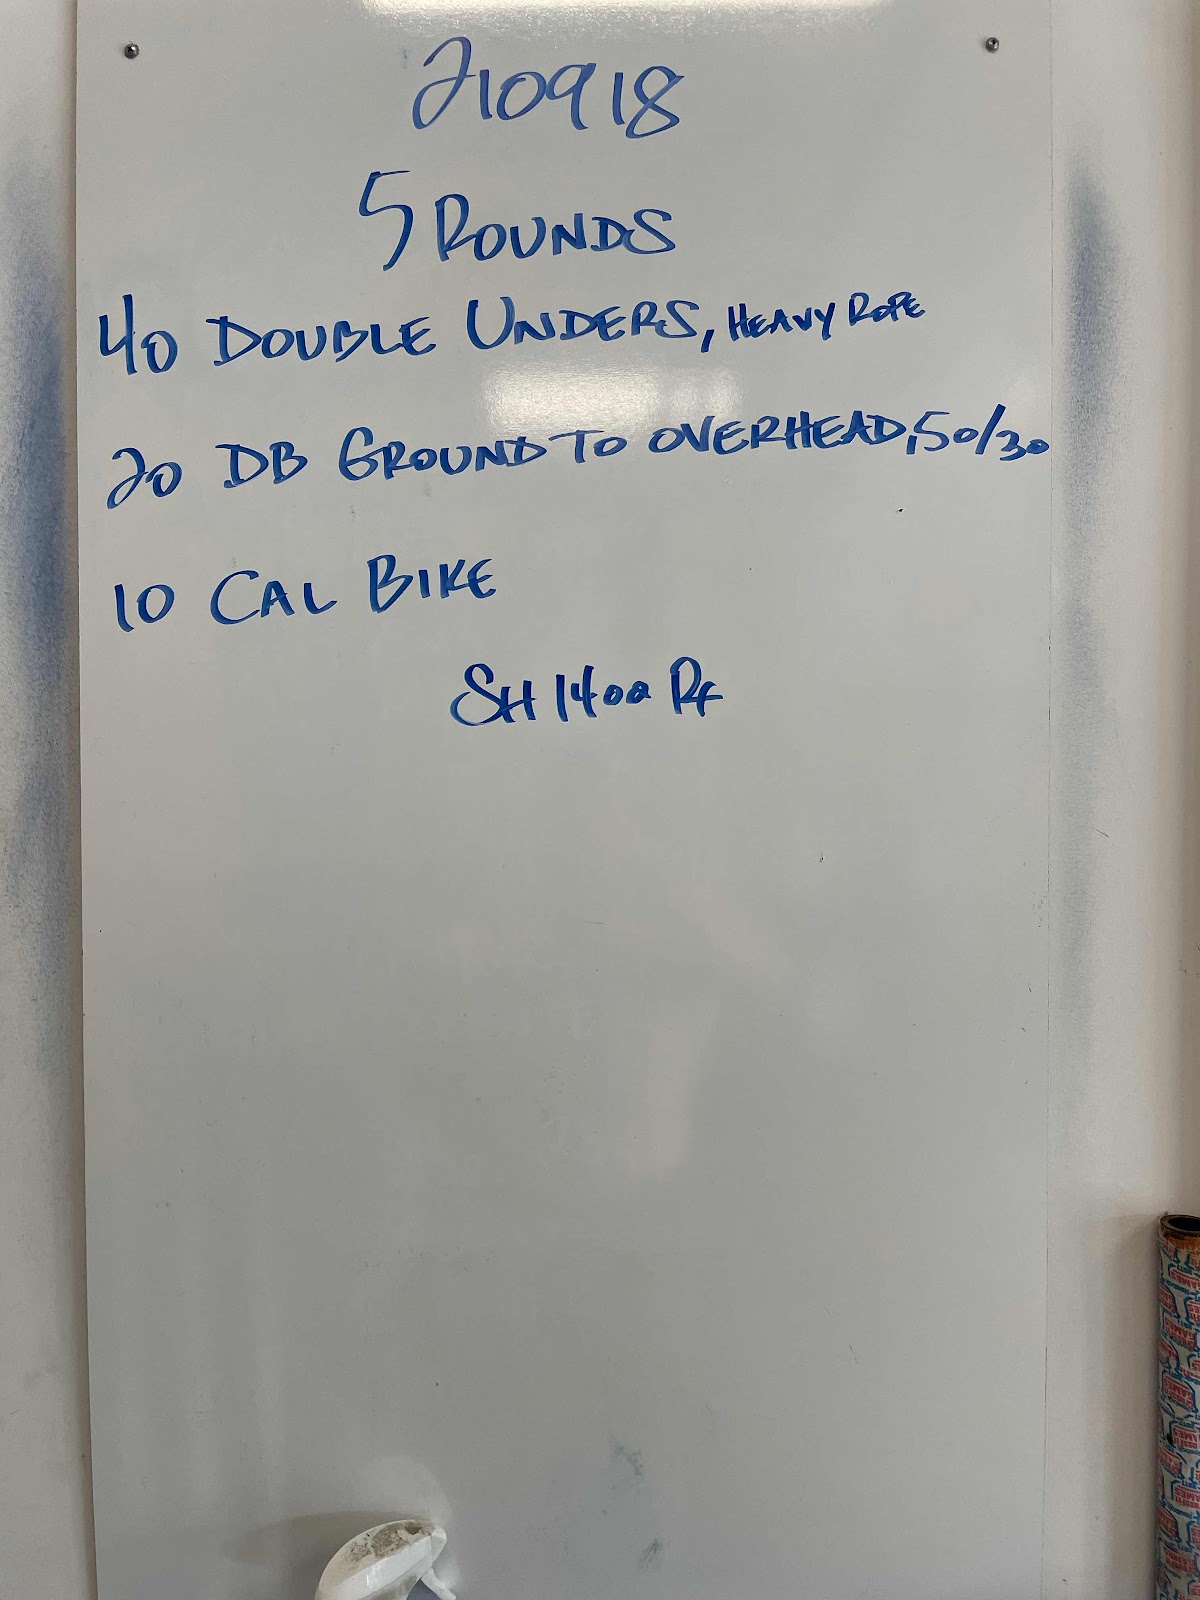 210918
5 ROUNDS
40 DOUBLE UNDERS, HEAVY ROPE
20 DB GROUND TO OVERHEAD, 50/30
10 CAL BIKE
SH 1400 Rx